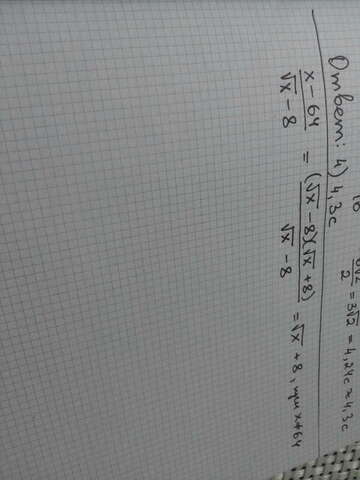 \frac{6\sqrt{2}}{2} = 3\sqrt{2} = 4,24c ≈ 4,3c
Ответ: 4) 4,3c
\frac{x - 64}{\sqrt{x} - 8} = \frac{(\sqrt{x} - 8)(\sqrt{x} + 8)}{\sqrt{x} - 8} = \sqrt{x} + 8, при x ≠ 64